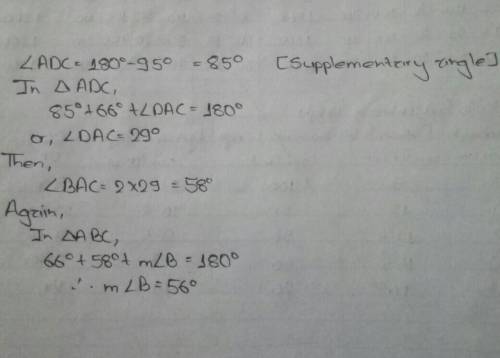 ∠ADC = 180° - 95° = 85° [Supplementary angle]
In △ ADC,
85° + 66° + ∠DAC = 180°
or, ∠DAC = 29°
Then,
∠BAC = 2×29 = 58°
Again,
In △ABC,
66° + 58° + m∠B = 180°
∴ m∠B = 56°